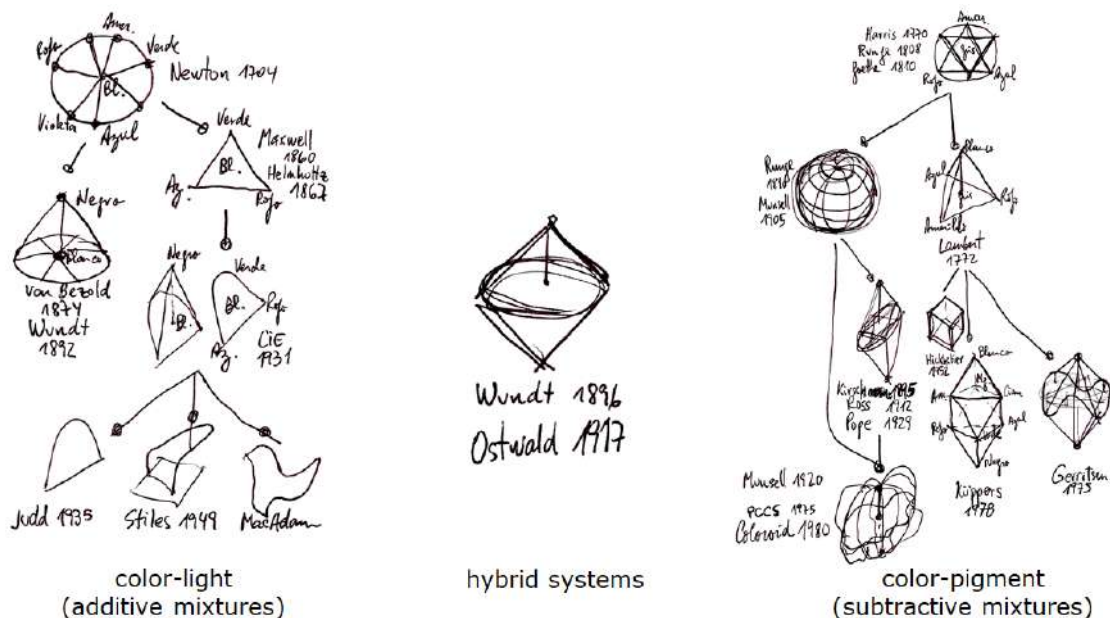 Amar.
Rojo
Verde
Bl.
Newton 1704
Violeta
Azul
Verde
Maxwell
1860
Bl.
Helmholtz
1867
Az.
Rojo
Negro
Blanco
Von Bezold
1874
Wundt
1892
Negro
Bl.
Verde
Bl.
Rojo
Az.
CIE
1931
Judd 1935
Stiles 1949
MacAdam
color-light
(additive mixtures)
Wundt 1896
Ostwald 1917
hybrid systems
Harris 1770
Runge 1808
Goethe 1810
Amar.
Gris
Rojo
Azul
Runge
1810
Munsell
1905
Blanco
Azul
Gris
Rojo
Amarillo
Lambert
1772
Kirschmann 1895
Ross 1912
Pope 1929
Hickethier
1952
Blanco
Mg.
Am.
Cian
Rojo
Azul
Verde
Negro
Küppers
1978
Gerritsen
1975
Munsell 1920
PCCS 1975
Coloroid 1980
color-pigment
(subtractive mixtures)